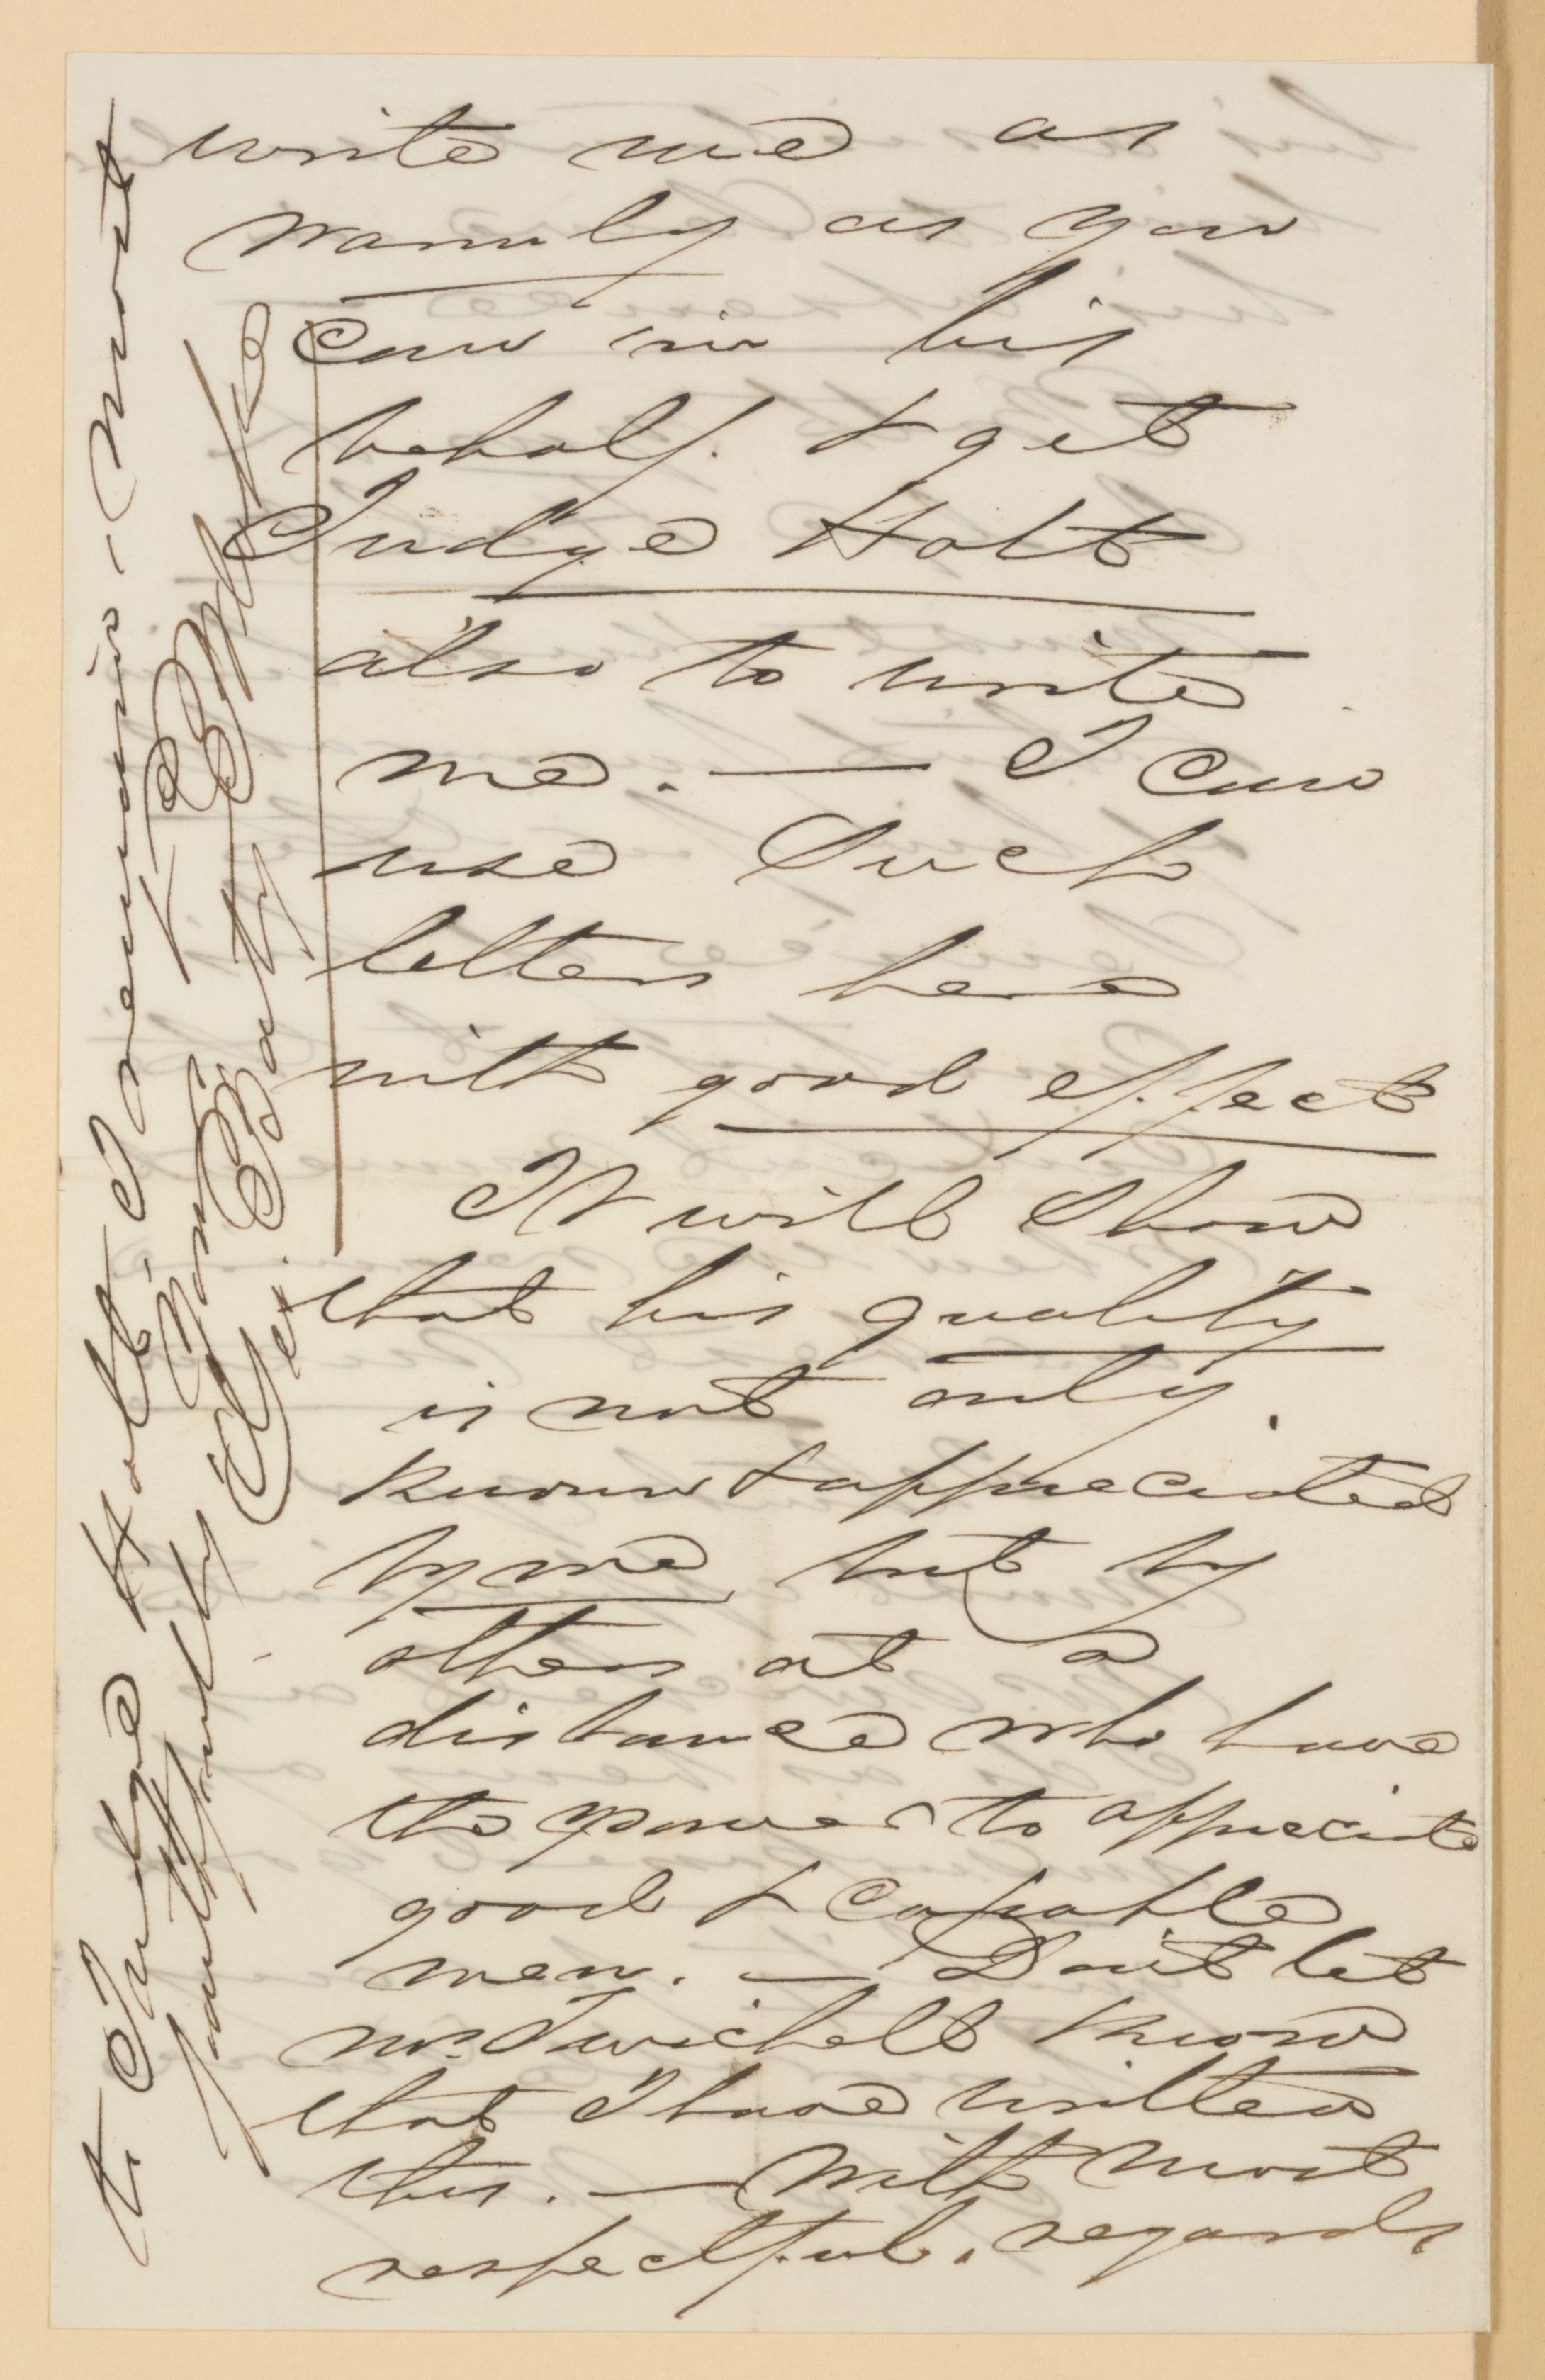 write me as
warmly as you
can in his
behalf. & get
Judge Holt
also to write
me. — I can
use Such
letters here
with good effect
It will Show
that his quality
is not only.
known & appreciated
by me, but by
others at a
distance who have
the power to appreciate
good & capable
men. — Don't let
Mr. Twichell know
that I have written
this. — With most
respectful. regards
to Judge Holt. I remain - Most
faithfully Yours